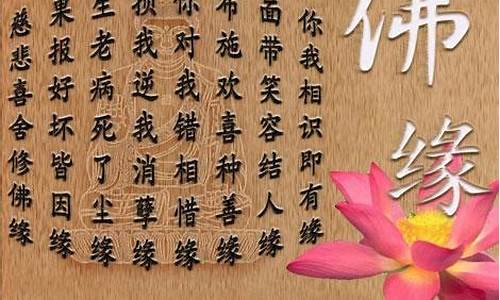 佛缘
你我相识即有缘
面带笑容结人缘
布施欢喜种善缘
你对我错相惜缘
损我逆我消孽缘
生老病死了尘缘
果报好坏皆因缘
慈悲喜舍修佛缘